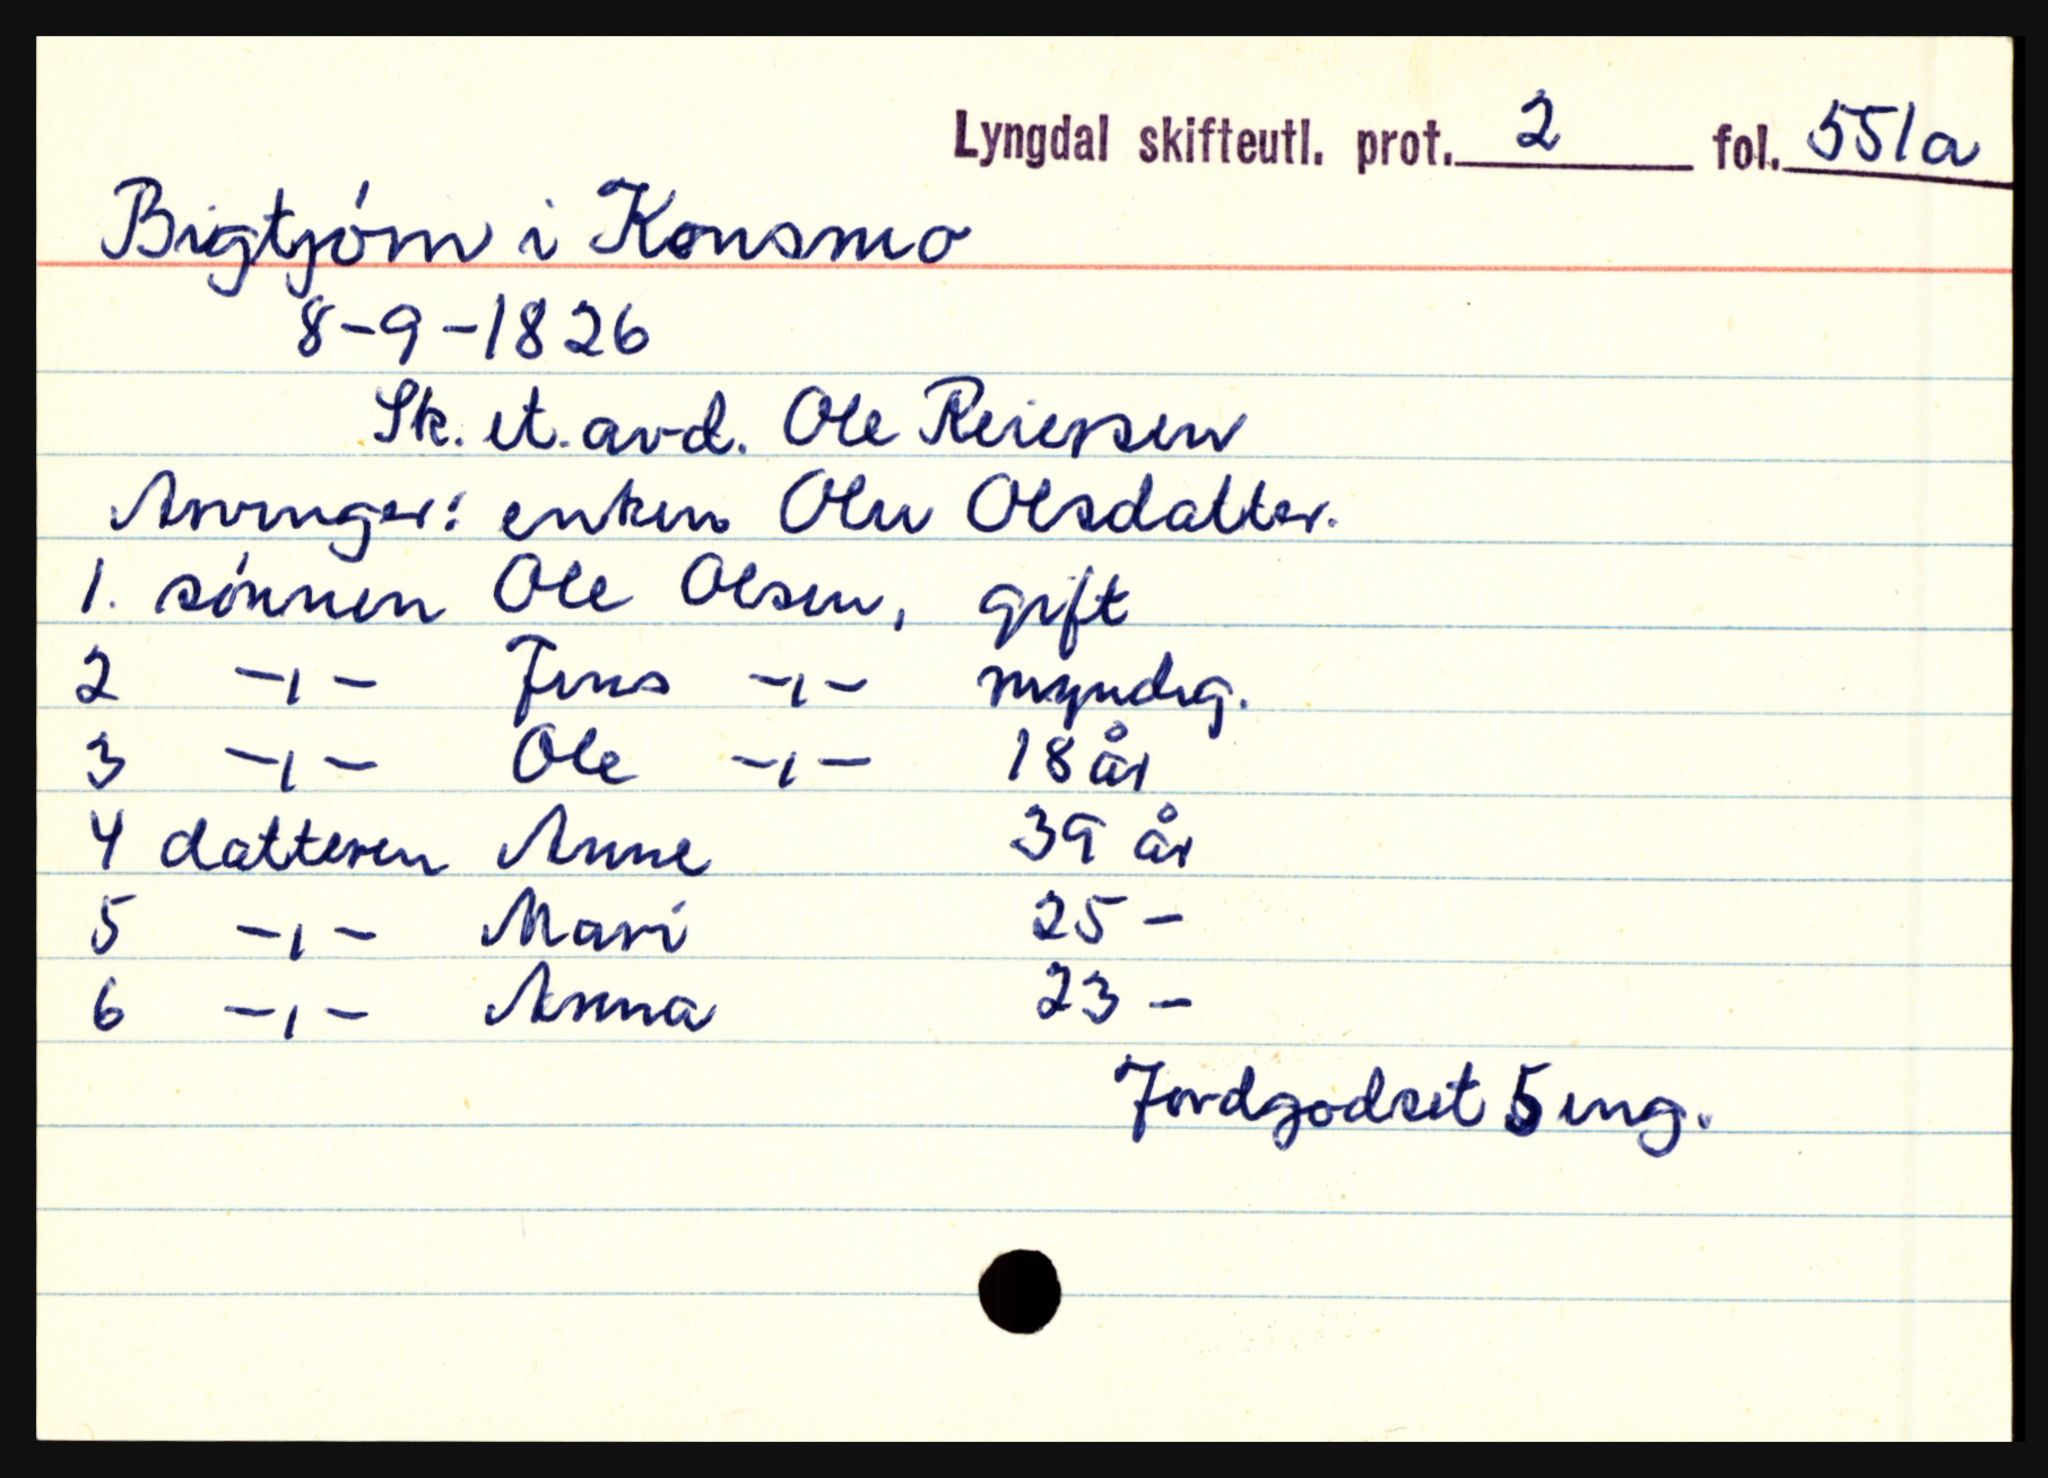 Lyngdal skifteutl. prot. 2 fol. 551a
Bigtjóm i Konsmo
8-9-1826
Sk. et. avd. Ole Reiersen
Arvinger: enken Olu Olsdatter.
1. sónnen Ole Olsen, gift
2 -ı- Jens -ı- myndig.
3 -ı- Ole -ı- 18 år
4 datteren Anne 39 år
5 -ı- Mari 25 -
6 -ı- Anna 23 -
Jordgodset 5 eng.